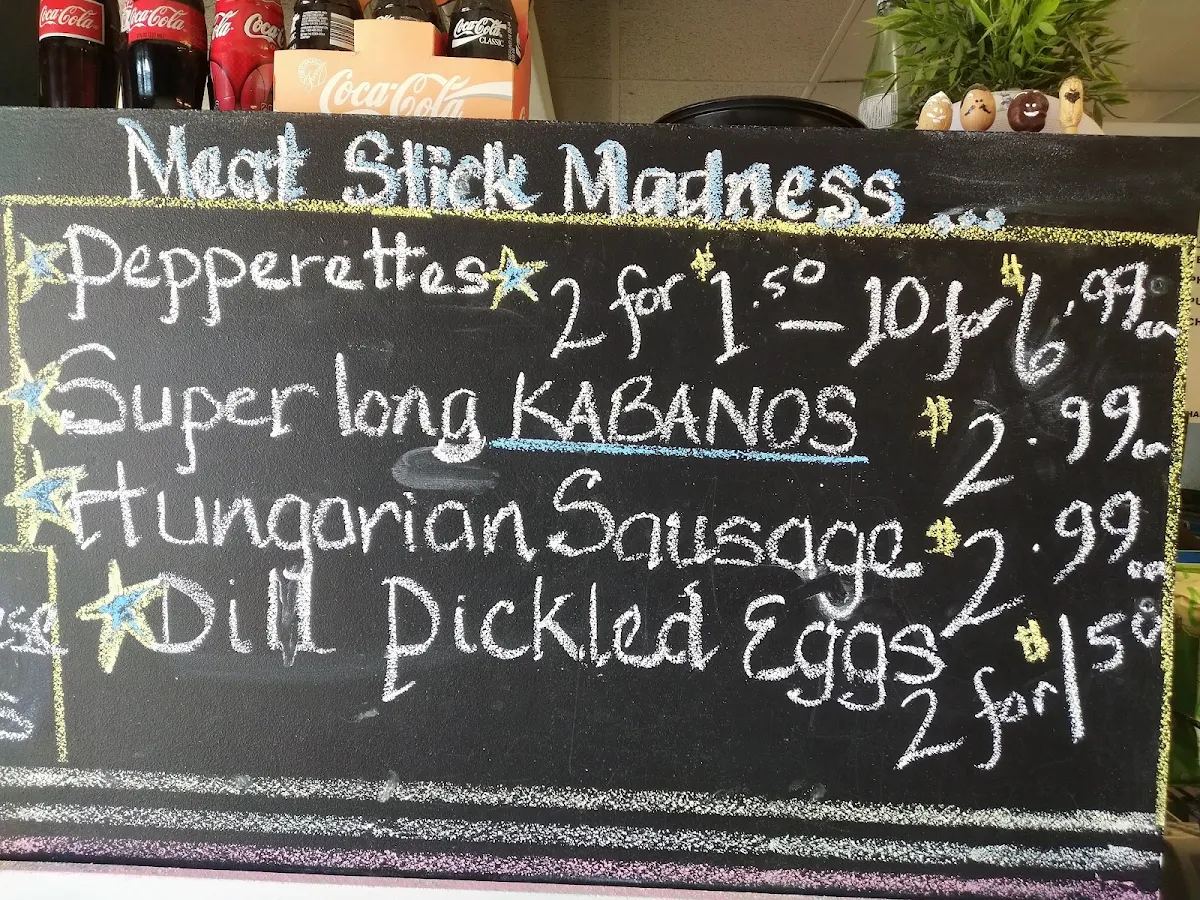 Coca-Cola
Coca-Cola
Coca-Cola
Coca-Cola
CLASSIC
Coca-Cola
Meat Stick Madness ...
Pepperettes 2 for $1.50 - 10 for $6.99 ea
Super long KABANOS $2.99 ea
Hungarian Sausage $2.99 ea
Dill Pickled Eggs 2 for $1.50